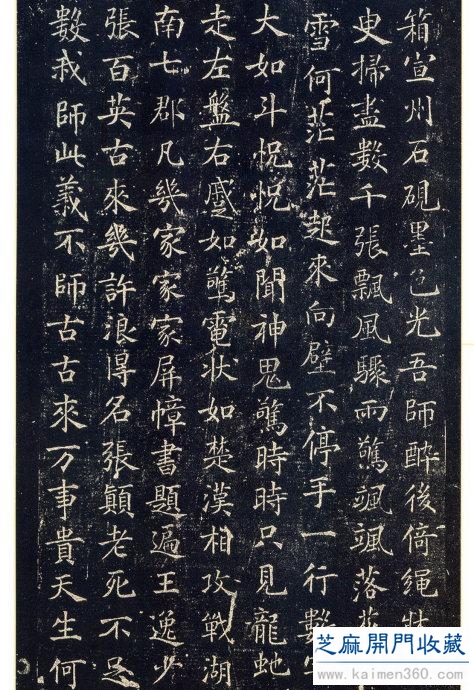 箱宣州石硯墨色光吾師醉後倚繩
臾掃盡數千張飄風驟雨驚颯颯落花
雪何茫茫起來向壁不停手一行數字
大如斗怳怳如聞神鬼驚時時只見龍虵
走左盤右蹙如驚電狀如楚漢相攻戰湖
南七郡凡幾家家家屏幛書題遍王逸少
張百英古來幾許浪得名張顛老死不足
數我師此義不師古古來万事貴天生何
芝麻開門收藏
www.kaimen360.com